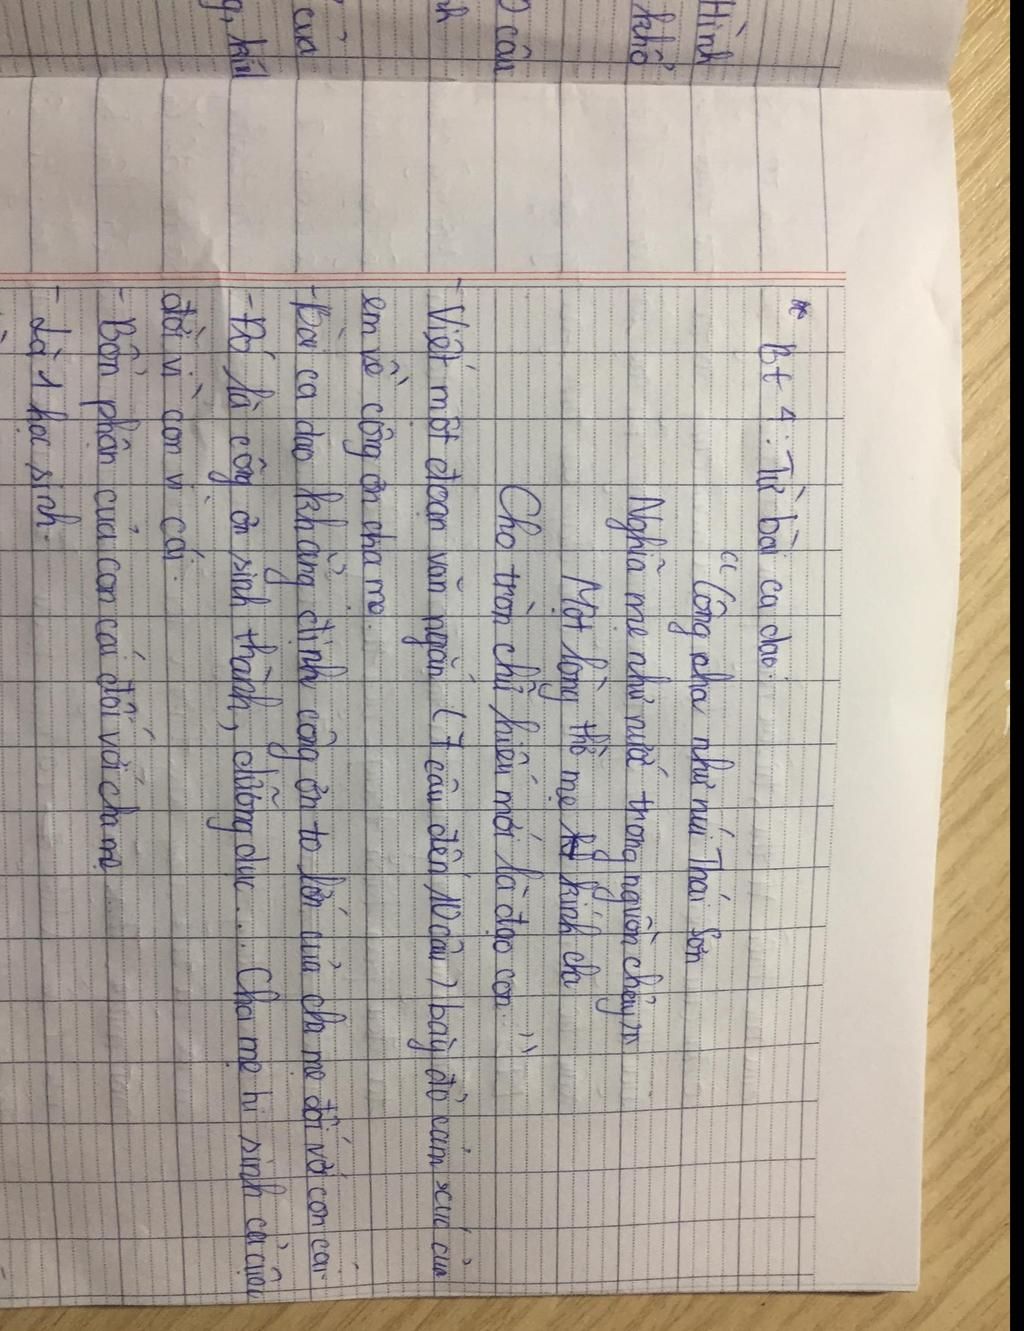 Hình
khổ
câu
nh
của
g, kiể
* Bt 4: Từ bài ca dao:
"Công cha như núi Thái Sơn
Nghĩa mẹ như nước trong nguồn chảy ra
Một lòng thờ mẹ kính cha
Cho tròn chữ hiếu mới là đạo con."
- Viết một đoạn văn ngắn (7 câu đến 10 câu) bày tỏ cảm xúc của
em về công ơn cha mẹ.
- Bài ca dao khẳng định công ơn to lớn của cha mẹ đối với con cái.
- Đó là công ơn sinh thành, dưỡng dục... Cha mẹ hi sinh cả cuộc
đời vì con vì cái.
- Bổn phận của con cái đối với cha mẹ
- Là 1 học sinh.